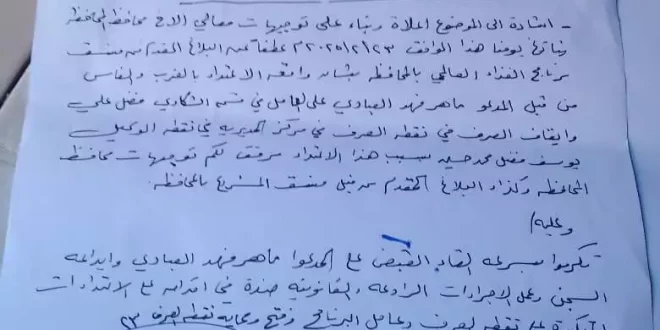 - اشارة الى الموضوع اعلاه وبناء على توجيهات معالي الاخ محافظ المحافظة
بتاريخ يومنا هذا الموافق ٢٠٢٥/٢/٢٣م عطفا عن البلاغ المقدم من منسق
برنامج الغذاء العالمي بالمحافظه بشان واقعه الاعتداء بالضرب والمساس
من قبل المدعو ماهر فهد العبادي على العامل في قسم الشكاوي فضل علي
وايقاف الصرف في نقطه الصرف في مركز المديريه في نقطه الوكيل
يوسف فضل محمد حسين بسبب هذا الاعتداء مرفق لكم توجيهات محافظ
المحافظه وكذا البلاغ المقدم من قبل منسق المشروع بالمحافظه.
وعليه/
تكرموا بسرعه القاء القبض على المدعوا ماهر فهد العبادي وايداعه
السجن وعمل الاجراءات الرادعه والقانونيه ضده في اقدامه على الاعتداءات
على نقطه الصرف وعامل البرنامج وفتح وحمايه نقطه الصرف